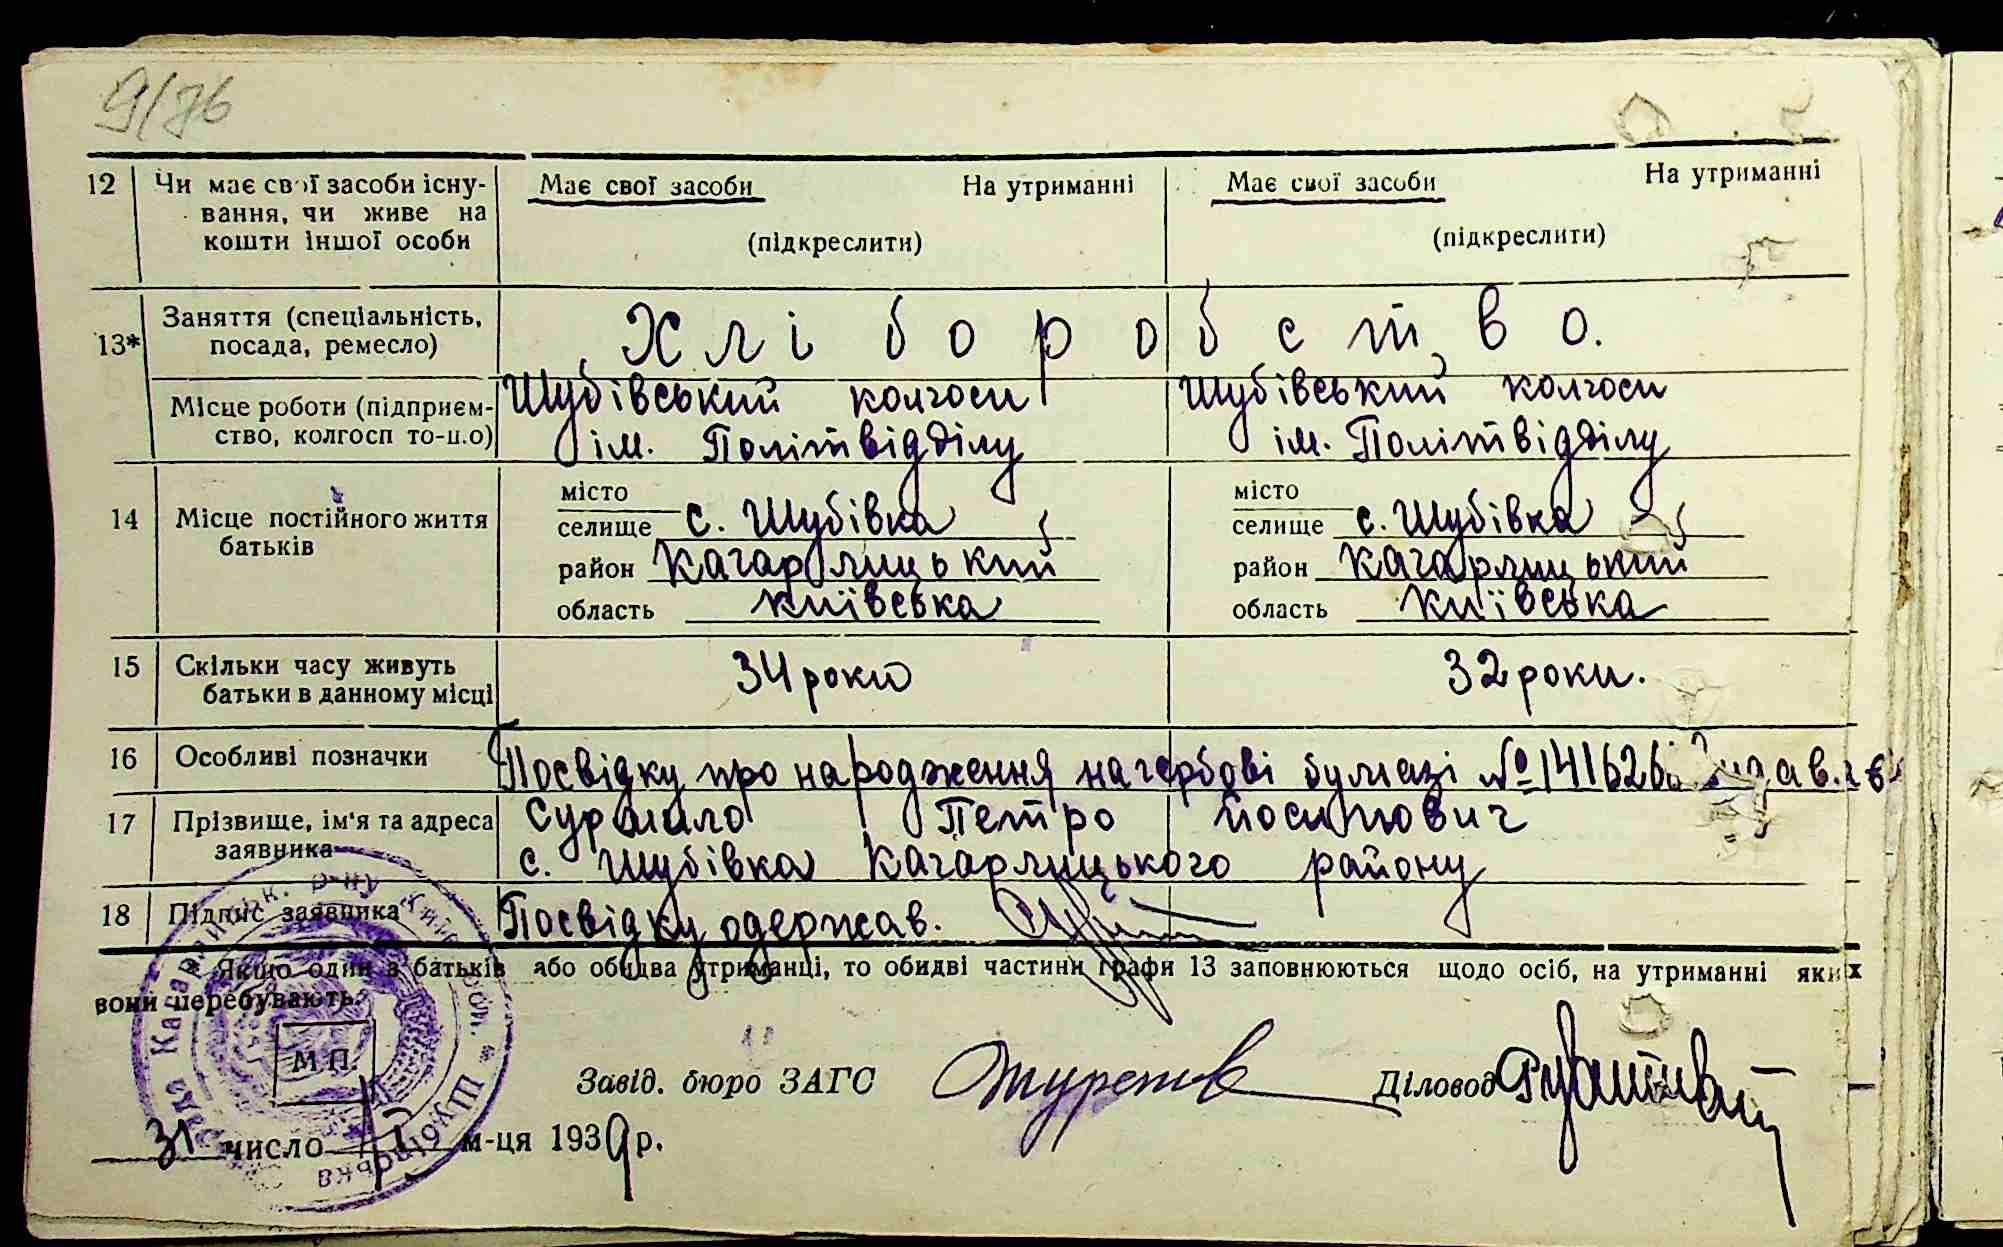 9/76
12 Чи має свої засоби існу- Має свої засоби На утриманні Має свої засоби На утриманні
вання, чи живе на
кошти іншої особи (підкреслити) (підкреслити)
13* Заняття (спеціальність, Хліборобство.
посада, ремесло)
Місце роботи (підприєм- Шубівський колгосп Шубівський колгосп
ство, колгосп то-що) ім. Політвідділу ім. Політвідділу
місто місто
14 Місце постійного життя селище с. Шубівка селище с. Шубівка
батьків район Кагарлицький район Кагарлицький
область Київська область Київська
15 Скільки часу живуть 34 роки 32 роки.
батьки в данному місці
16 Особливі позначки Посвідку про народження на гербові бумазі № видав.
17 Прізвище, ім'я та адреса Петро Йосипович
заявника с. Шубівка Кагарлицького району
18 Підпис заявника Посвідку одержав.
Якщо один з батьків або обидва утриманці, то обидві частини графи 13 заповнюються щодо осіб, на утриманні яких
вони перебувають.
М.П.
Завід. бюро ЗАГС Діловод
31 число м-ця 1939 р.